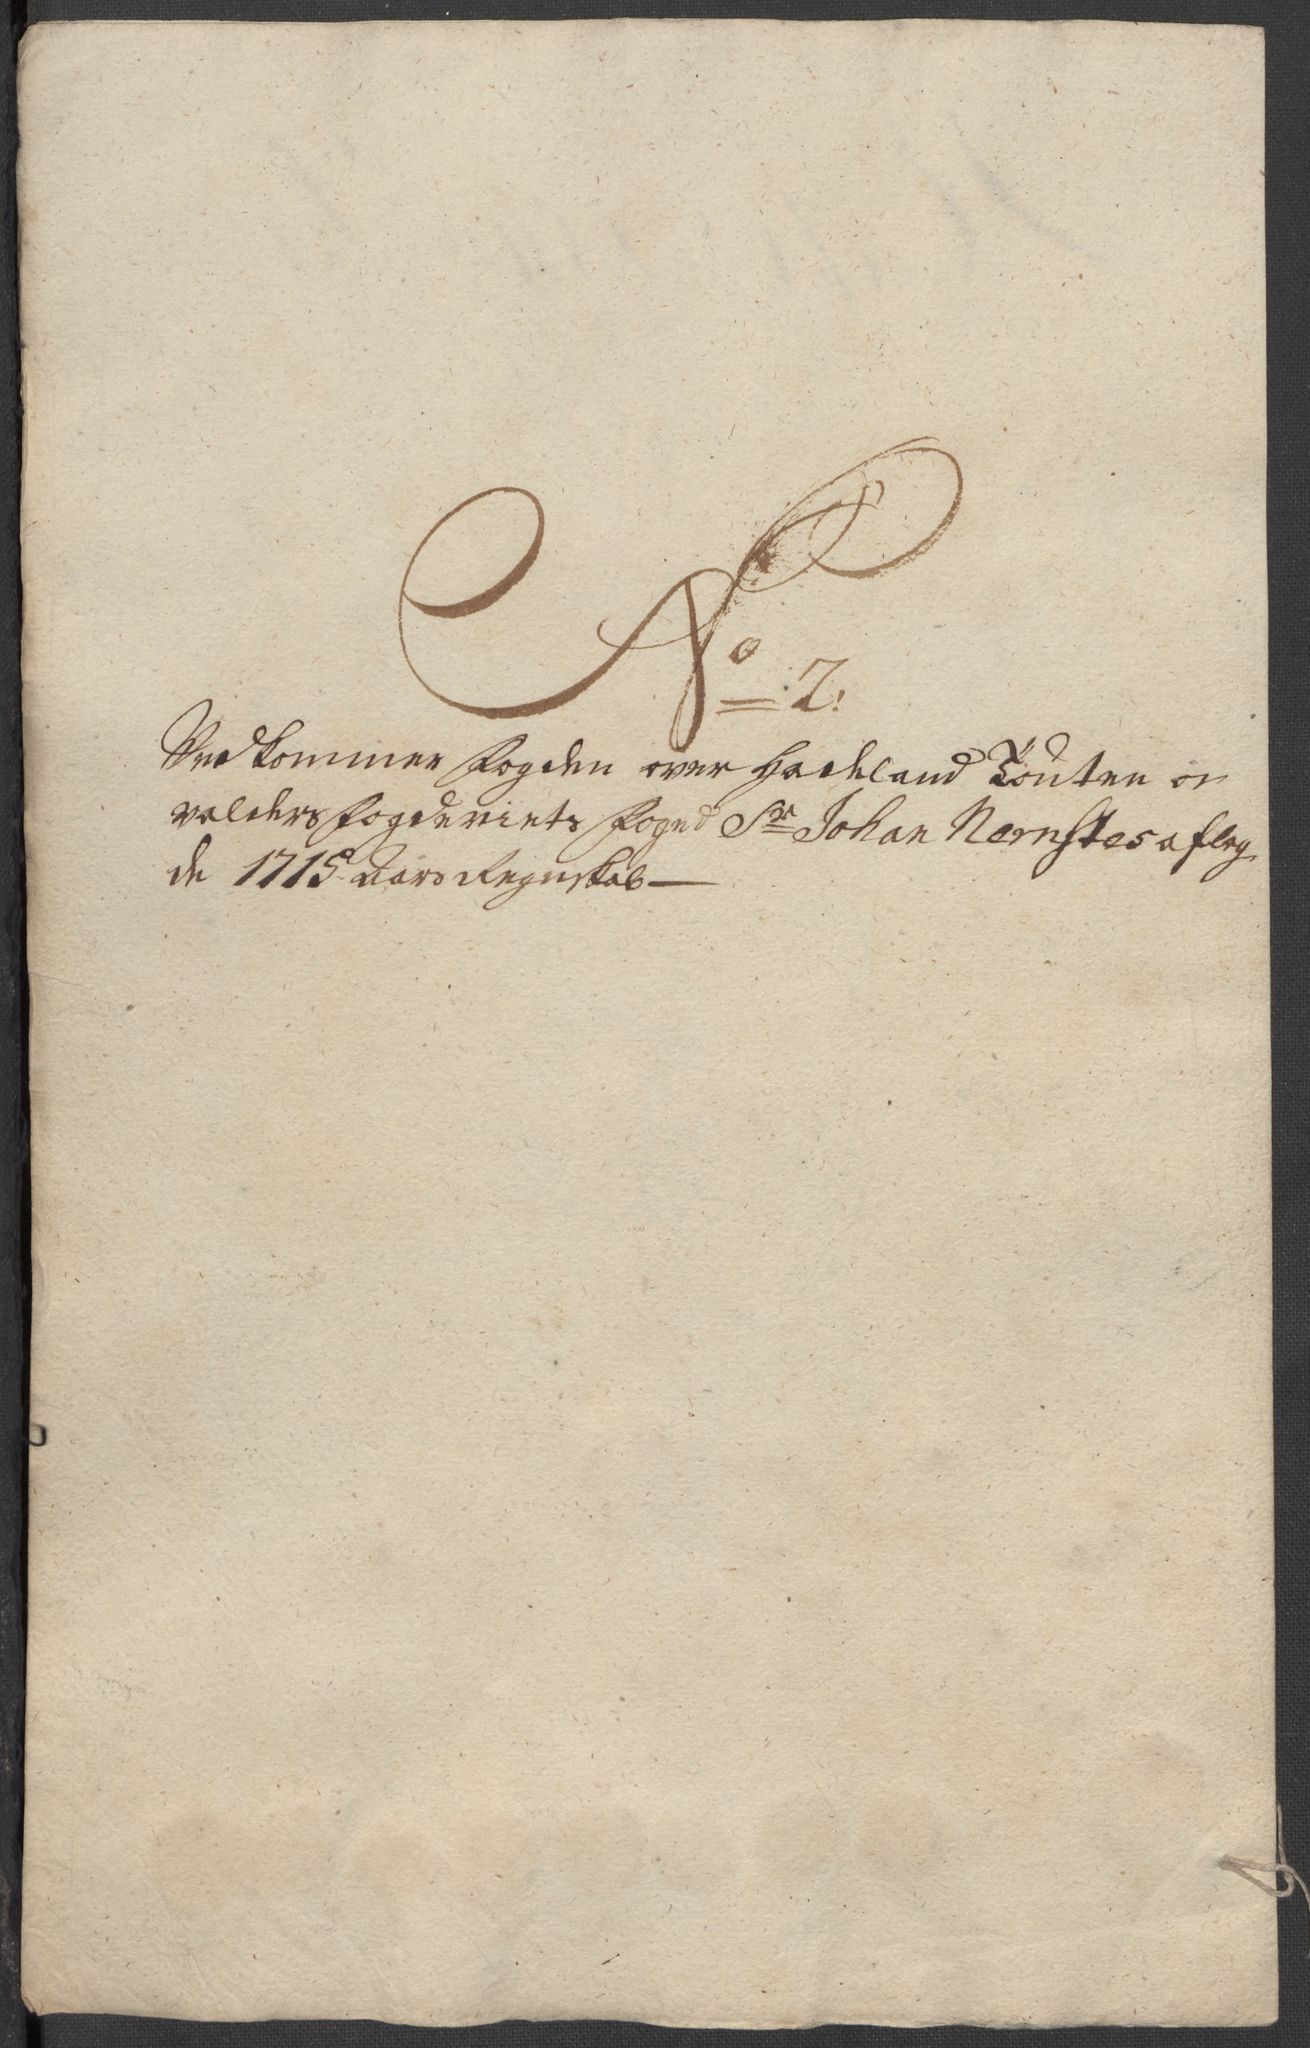 No 2.
Vedkommer Fogden over Hadeland Touten og
valders Fogderiets Foged Sr Johan Nernstes aflag
de 1715 Aars Regnskab —